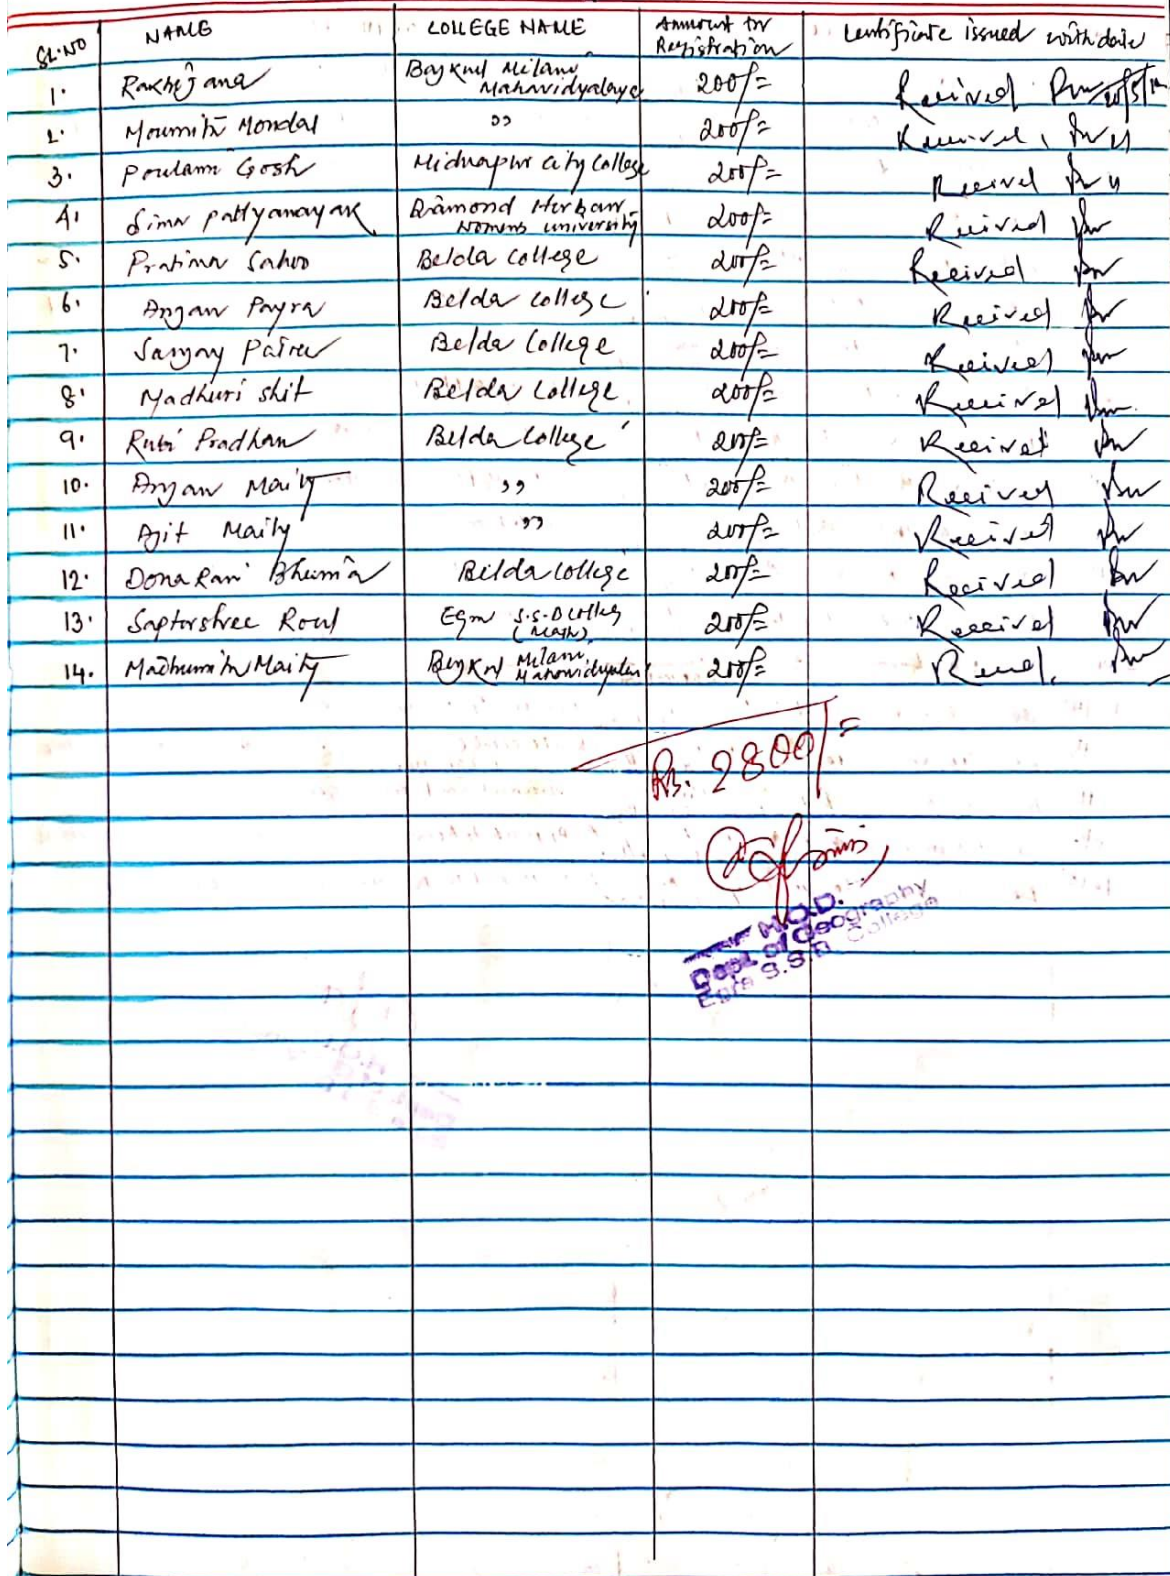 SL.NO NAME COLLEGE NAME Ammount for Registration Certificate issued with date
1. Rakhi Jana Bajkul Milani Mahavidyalaya 200/= Received
2. Moumita Mondal ,, 200/= Received
3. Poulami Gosh Midnapur City College 200/= Received
4. Sima Pattyanayak Diamond Harbar Womens University 200/= Received
5. Pratima Sahoo Belda College 200/= Received
6. Anjan Payra Belda College 200/= Received
7. Sanjay Patra Belda College 200/= Received
8. Madhuri Shit Belda College 200/= Received
9. Rubi Pradhan Belda College 200/= Received
10. Anjan Maity ,, 200/= Received
11. Ajit Maity ,, 200/= Received
12. Dona Rani Bhunia Belda College 200/= Received
13. Saptarshree Roul Egra S.S.B College (Math) 200/= Received
14. Madhumita Maity Bajkul Milani Mahavidyalaya 200/=
Rs. 2800/=
H.O.D.
Dept. of Geography
Egra S.S.B. College